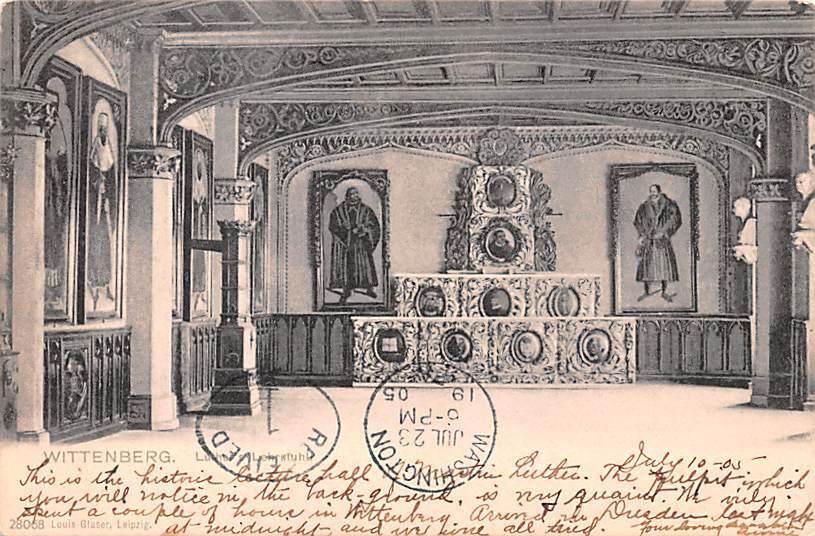 WITTENBERG. Luthers Lehrstuhl
RFIELD
1
WASHINGTON
JUL 23
6-PM
19 05
July 10-05
This is the historic lecture hall of Martin Luther. The pulpit which
you will notice in the back-ground, is very quaint. We
spent a couple of hours in Wittenberg Arrived in Dresden last night
at midnight and we're all tired. Your loving
28068 Louis Glaser, Leipzig.